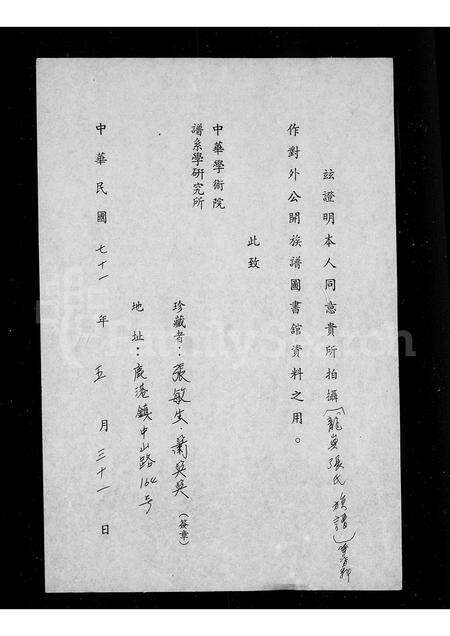 玆證明本人同意貴所拍攝（龍奧張氏族譜）
作對外公開族譜圖書館資料之用。
此致
中華學術院
譜系學研究所
珍藏者：張敏生．蕭 （簽章）
地址：鹿港鎮中山路164号
中華民國七十一年五月三十一日